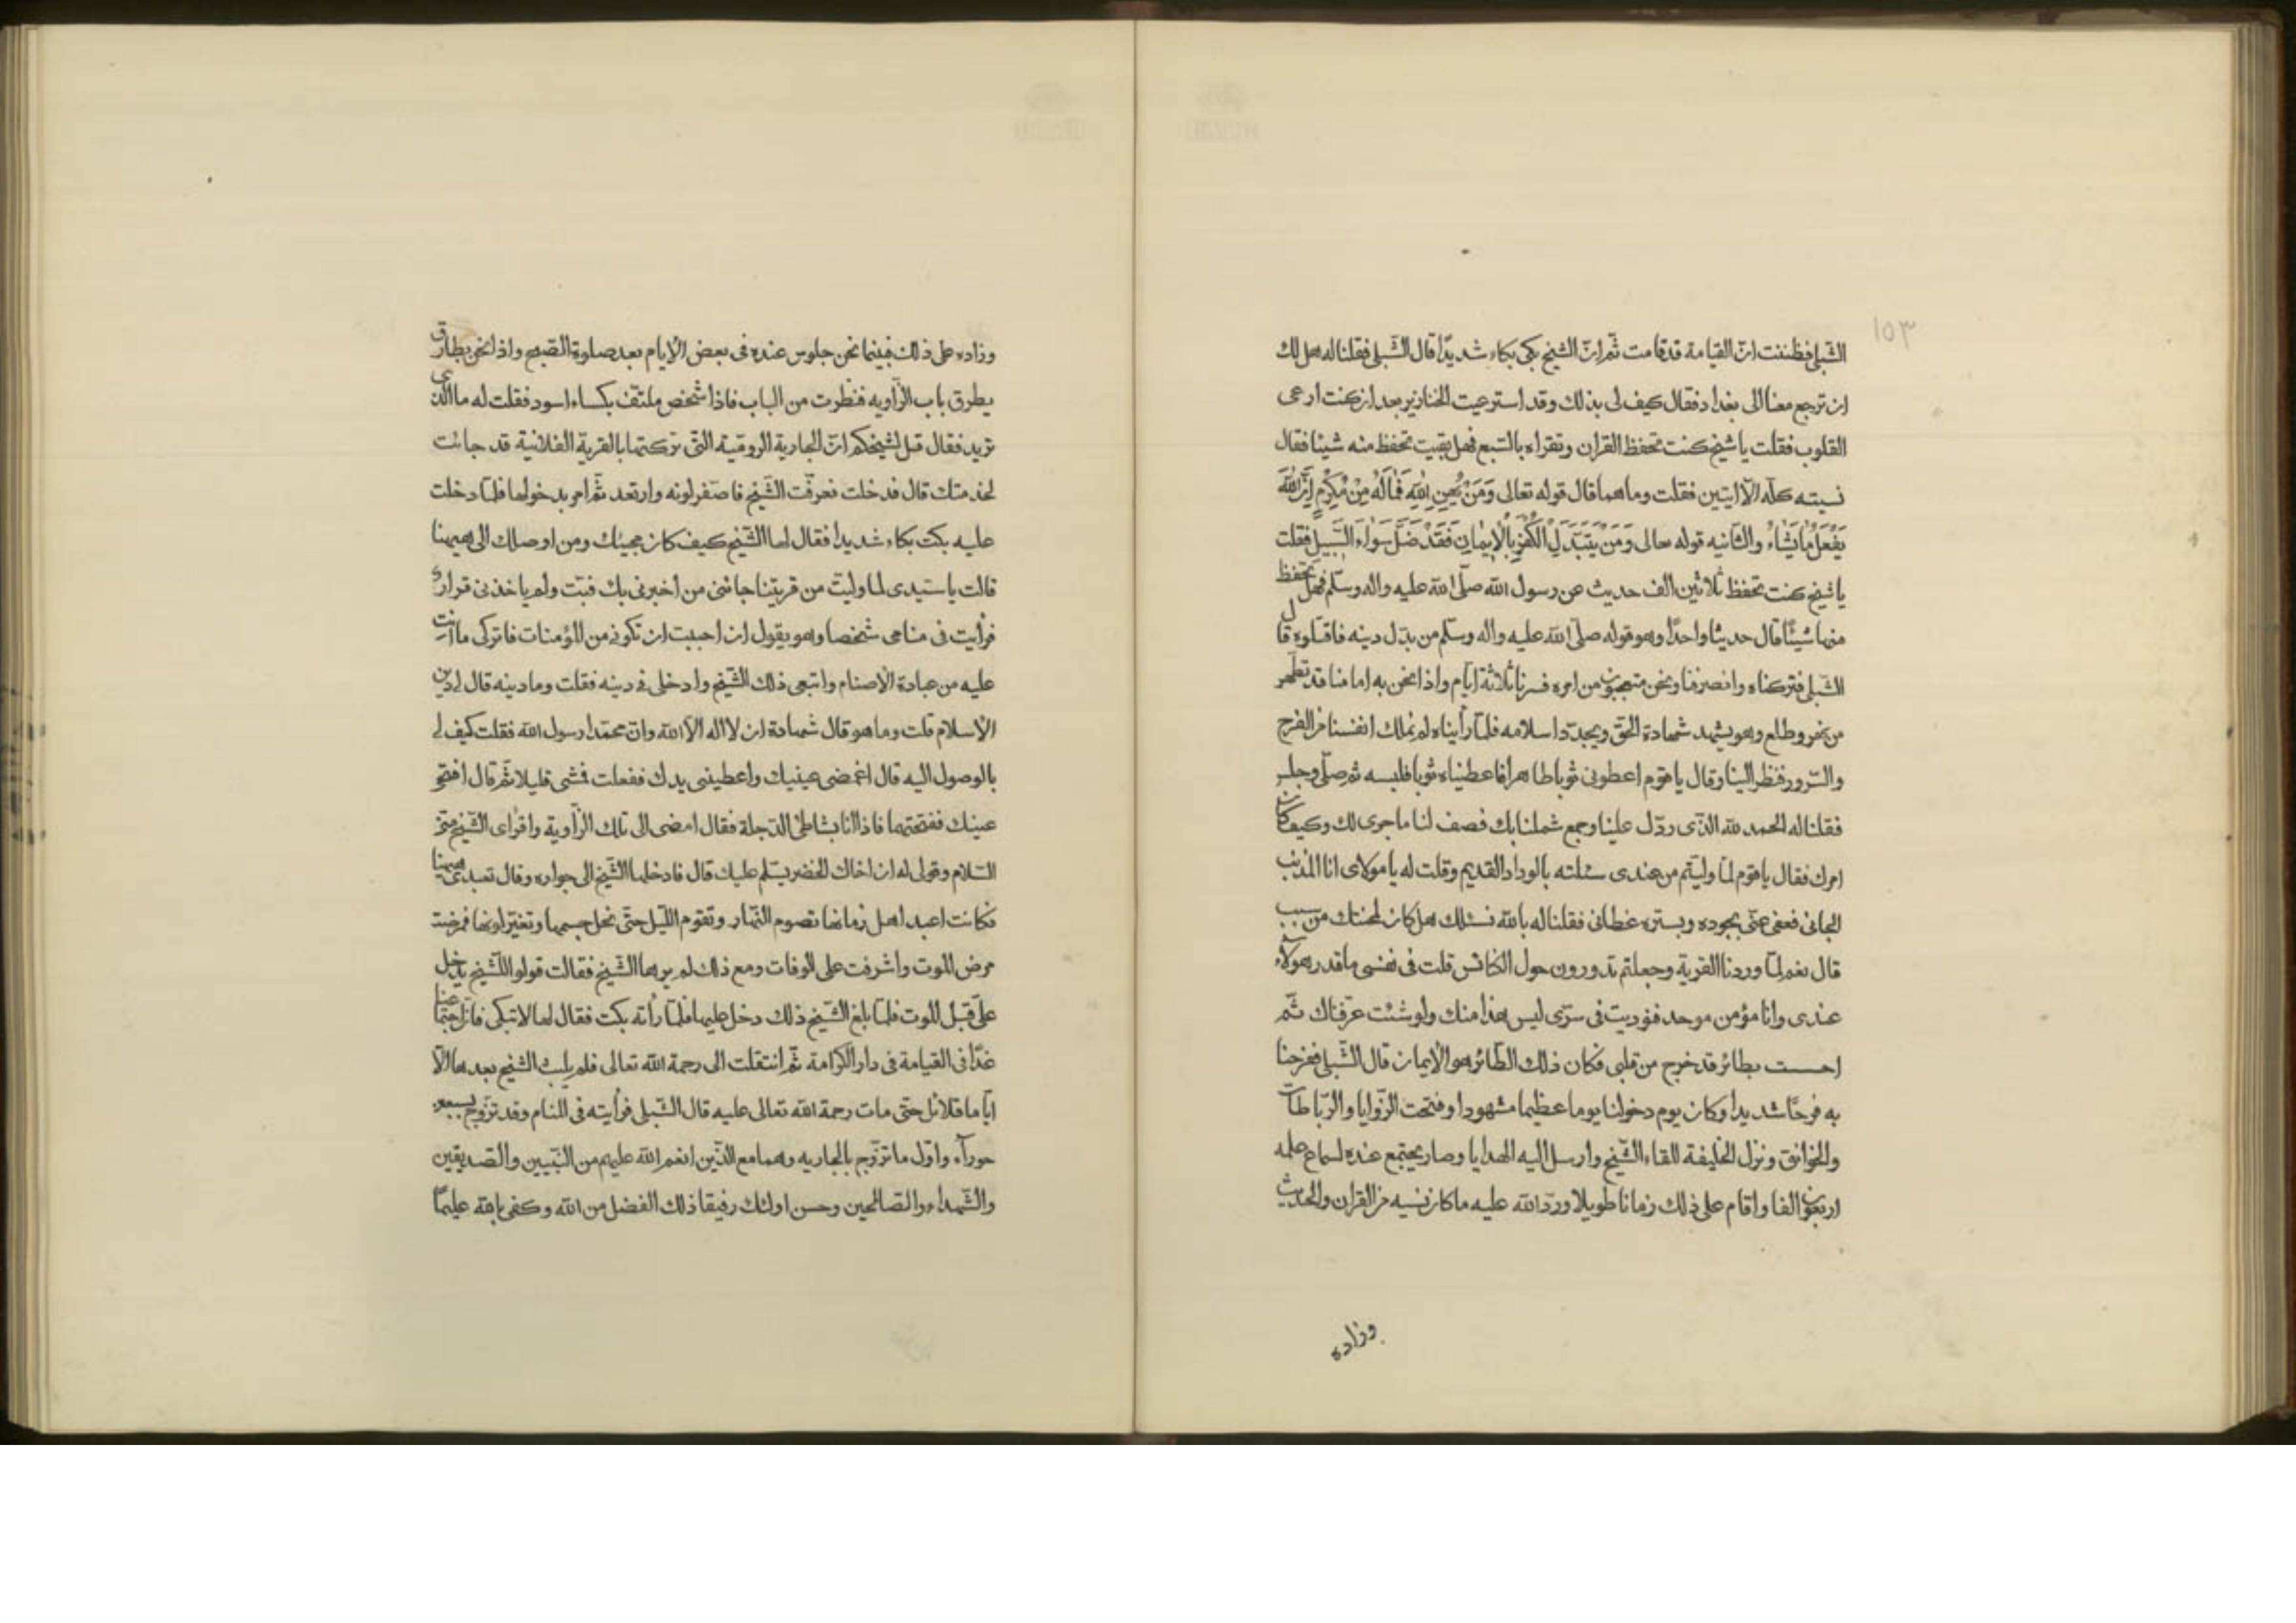 ١٥٣
الشّبلى فظننت انّ القيامة قد قامت ثمّ انّ الشيخ بكى بكاء شديدًا قال الشّبلى فقلنا له هل لك
ان ترجع معنا الى بغداد فقال كيف لى بذلك وقد استرعيت الخنازير بعد ان كنت ارعى
القلوب فقلت يا شيخ كنت تحفظ القران وتقراء بالسّبع فهل بقيت تحفظ منه شيئا فقال
نسيته كلّه الّا ايتين فقلت وما هما قال قوله تعالى وَمَنْ يُهِنِ اللّٰهَ فَمَا لَهُ مِنْ مُكْرِمٍ اِنَّ اللّٰهَ
يَفْعَلُ مَا يَشَاءُ والثانيه قوله تعالى وَمَنْ يَتَبَدَّلِ الْكُفْرَ بِالْاِيمَانِ فَقَدْ ضَلَّ سَوَاءَ السَّبِيلِ فقلت
يا شيخ كنت تحفظ ثلاثين الف حديث عن رسول الله صلّى الله عليه واله وسلّم فهل تحفظ
منها شيئًا قال حديثا واحدًا وهو قوله صلّى الله عليه واله وسلّم من بدّل دينه فاقتلوه قال
الشّبلى فتركناه وانصرفنا ونحن متعجّبون من امره فسرنا ثلاثة ايّام واذا نحن به امامنا قد تطهّر
من نهر وطلع وهو يشهد شهادة الحقّ ويجدّد اسلامه فلمّا رأيناه لم نملك انفسنا من الفرح
والسّرور فنظر الينا وقال يا قوم اعطونى ثوبا طاهرا فاعطيناه ثوبا فلبسه ثم صلّى وجلس
فقلنا له الحمد لله الذّى ردّك علينا وجمع شملنا بك فصف لنا ما جرى لك وكيف كان
امرك فقال يا قوم لمّا ولّيتم من عندى سئلته بالوداد القديم وقلت له يا مولاى انا المذنب
الجانى فعفى عنّى بجوده وبستره غطانى فقلنا له بالله نسئلك هل كان لمحنتك من سبب
قال نعم لمّا وردنا القرية وجعلتم تدورون حول الكنائس قلت فى نفسى ما قدر هؤلاء
عندى وانا مؤمن موحد فنوديت فى سرّى ليس هذا منك ولو شئت عرّفناك ثمّ
احسست بطائر قد خرج من قلبى فكان ذلك الطّائر هو الايمان قال الشّبلى ففرحنا
به فرحًا شديدا وكان يوم دخولنا يوما عظيما مشهودا وفتحت الزّوايا والرّباطات
والخوانق ونزل الخليفة للقاء الشّيخ وارسل اليه الهدايا وصار يجتمع عنده لسماع علمه
اربعون الفا واقام على ذلك زمانا طويلا وردّ الله عليه ما كان نسيه من القران والحديث
وزاده
وزاده على ذلك فبينما نحن جلوس عنده فى بعض الايام بعد صلوة الصّبح واذا نحن بطارق
يطرق باب الزّاويه فنظرت من الباب فاذا شخص ملتفّ بكساء اسود فقلت له ما الذى
تريد فقال قل لشيخكم انّ الجارية الروميّة التّى تركتها بالقرية الفلانية قد جائت
لخدمتك قال فدخلت فعرفّت الشّيخ فاصّفر لونه وارتعد ثمّ امر بدخولها فلمّا دخلت
عليه بكت بكاء شديدا فقال لها الشّيخ كيف كان مجيئك ومن اوصلك الى هيهنا
قالت يا سيّدى لما ولّيت من قريتنا جائنى من اخبرنى بك فبتّ ولم ياخذنى قرار
فرأيت فى منامى شخصا وهو يقول ان احببت ان تكونى من المؤمنات فاتركى ما انت
عليه من عبادة الاصنام واتبعى ذلك الشّيخ وادخلى فى دينه فقلت وما دينه قال لى دين
الاسلام قلت وما هو قال شهادة ان لا اله الّا الله وانّ محمّدا رسول الله فقلت كيف لى
بالوصول اليه قال اغمضى عينيك واعطينى يدك ففعلت فمشى قليلا ثمّ قال افتحى
عينك ففتحتهما فاذا انا بشاطئ الدّجلة فقال امضى الى تلك الزّاوية واقرأى الشّيخ منّى
السّلام وقولى له ان اخاك الخضر يسّلم عليك قال فادخلها الشّيخ الى جواره وقال تعبدى هيهنا
فكانت اعبد اهل زمانها تصوم النّهار وتقوم اللّيل حتّى نحل جسمها وتغيّر لونها فمرضت
مرض الموت واشرفت على الوفات ومع ذلك لم يرها الشّيخ فقالت قولوا للشّيخ يدخل
علىّ قبل الموت فلمّا بلغ الشّيخ ذلك دخل عليها فلمّا رأته بكت فقال لها لا تبكى فانّ اجتماعنا
غدًا فى القيامة فى دار الكرامة ثمّ انتقلت الى رحمة الله تعالى فلم يلبث الشيخ بعدها الّا
ايّاما قلائل حتّى مات رحمة الله تعالى عليه قال الشّبلى فرأيته فى المنام وقد تزوّج بسبعين
حورآء واوّل ما تزّوج بالجاريه وهما مع الذّين انعم الله عليهم من النّبيين والصّديقين
والشّهداء والصّالحين وحسن اولئك رفيقا ذلك الفضل من الله وكفى بالله عليمًا